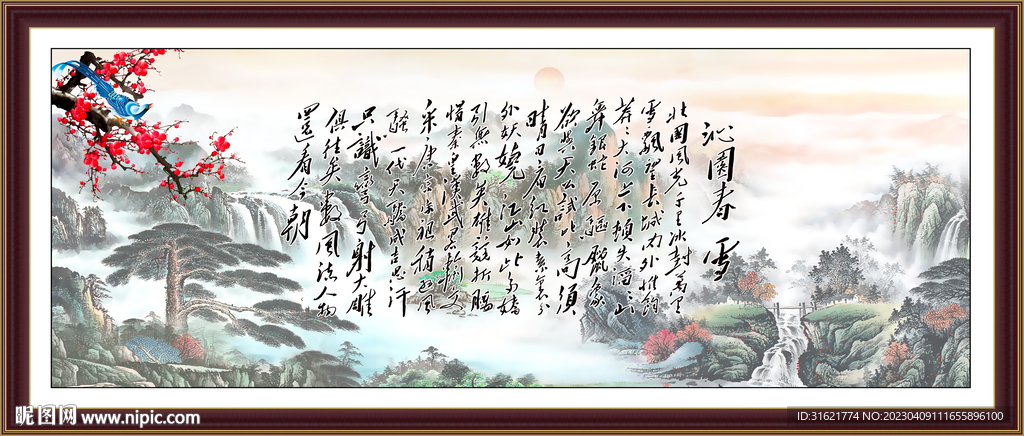 沁園春 雪
北國風光千里冰封萬里
雪飄望長城內外惟餘
莽々大河上下頓失滔々山
舞銀蛇原驅臘象
欲與天公試比高須
晴日看紅裝素裹分
外妖嬈江山如此多嬌
引無數英雄競折腰
惜秦皇漢武略輸文
采唐宗宋祖稍遜風
騷一代天驕成吉思汗
只識彎弓射大雕
俱往矣數風流人物
還看今朝
昵图网 www.nipic.com
ID:31621774 NO:20230409111655896100